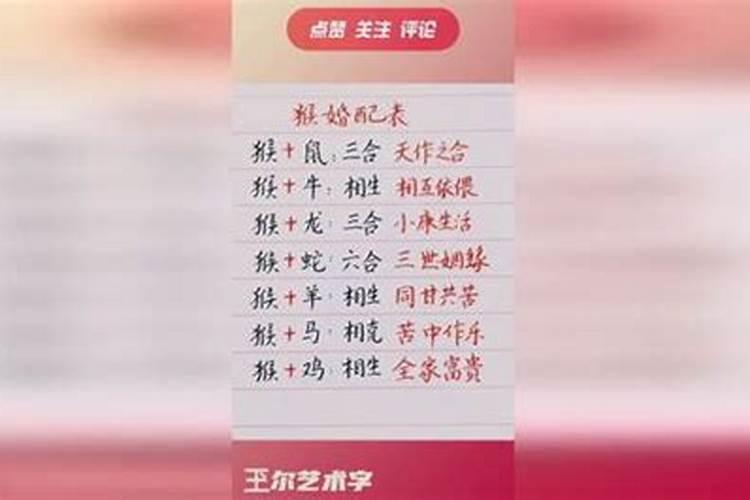 点赞 关注 评论
猴婚配表
猴+鼠:三合 天作之合
猴+牛:相生 相互依偎
猴+龙:三合 小康生活
猴+蛇:六合 三世姻缘
猴+羊:相生 同甘共苦
猴+马:相克 苦中作乐
猴+鸡:相生 全家富贵
王尔艺术字